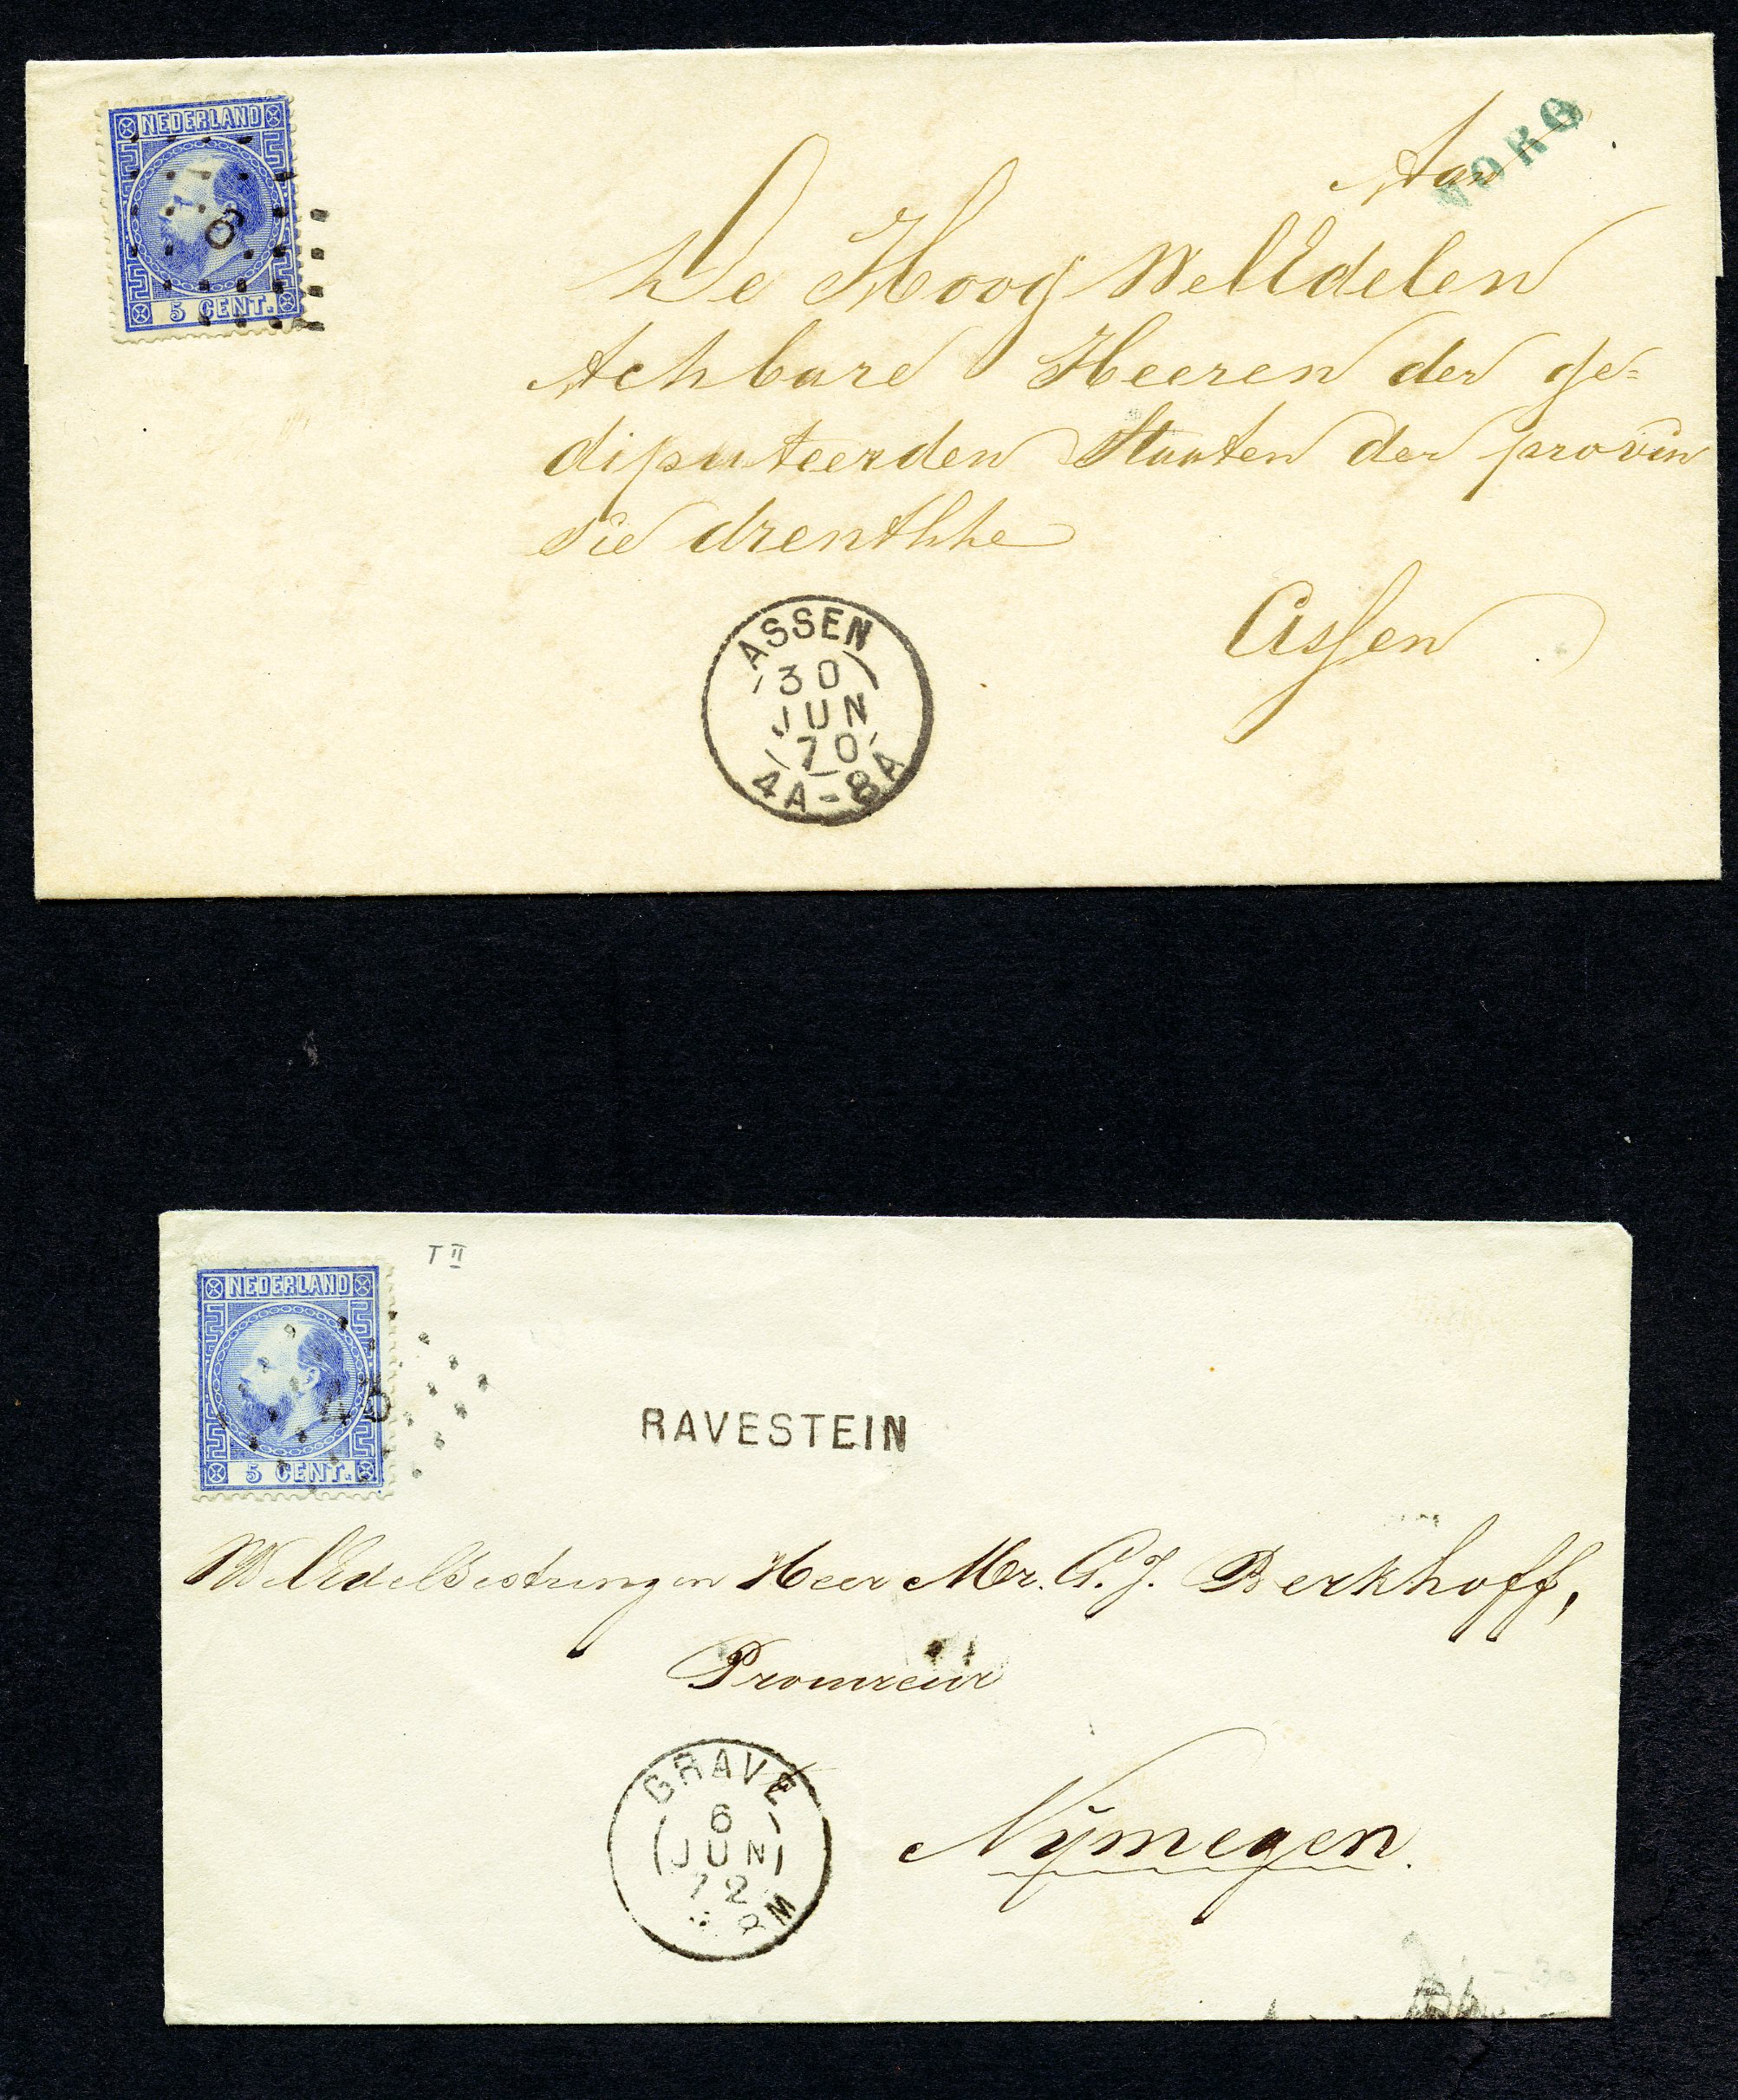 NEDERLAND
8
5 CENT.
NORG
Aan
De Hoog WellEdelen
Achbare Heeren der ge=
diputeerden Staaten der provin
sie drenthhe
Assen
ASSEN
30
JUN
70
4A-8A
T II
NEDERLAND
45
5 CENT.
RAVESTEIN
WelEdelGestrengen Heer Mr. G. J. Berkhoff,
Procureur
GRAVE
6
JUN
72
8M
Nymegen.